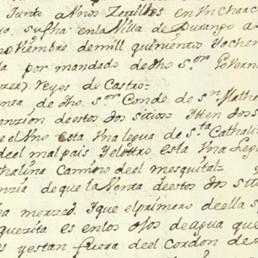 Junto a Unos Zorrillos en Un Chaco
yo, su fha en la Villa de Durango a
oViembre de mill quinientos Yochen
da por mandado de dho s.or Govern
rez, Reyes de Castro.
nta de dho s.or Conde de s.n Mathe
enzion de estos dos sitios. Itten dos
e el Uno esta Una legua de s.ta Cathali
de el mal pais Y el otro esta Una Leg
thalina Camino de el mesquital
enzia de que la Venta de estos dos siti
ha merzed. Y que el primero de ella s
querita es en los ojos de agua que
s y estan fuera de el Cordon de